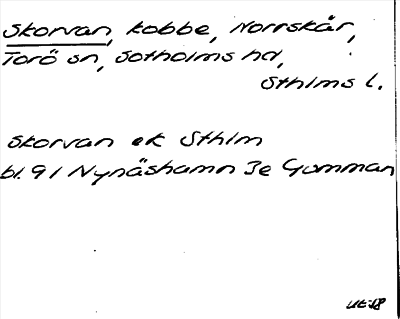 Skorvan, kobbe, Norrskär,
Torö sn, Sotholms hd,
Sthlms l.
Skorvan ek Sthlm
bl. 91 Nynäshamn 3e Gumman